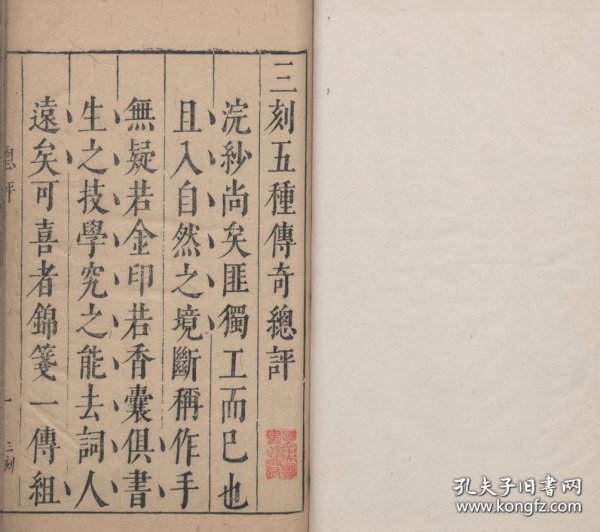 三刻五種傳奇總評
浣紗尚矣匪獨工而已也
且入自然之境斷稱作手
無疑若金印若香囊俱書
生之技學究之能去詞人
遠矣可喜者錦箋一傳組
總評
一
三刻
孔夫子旧书网
www.kongfz.com